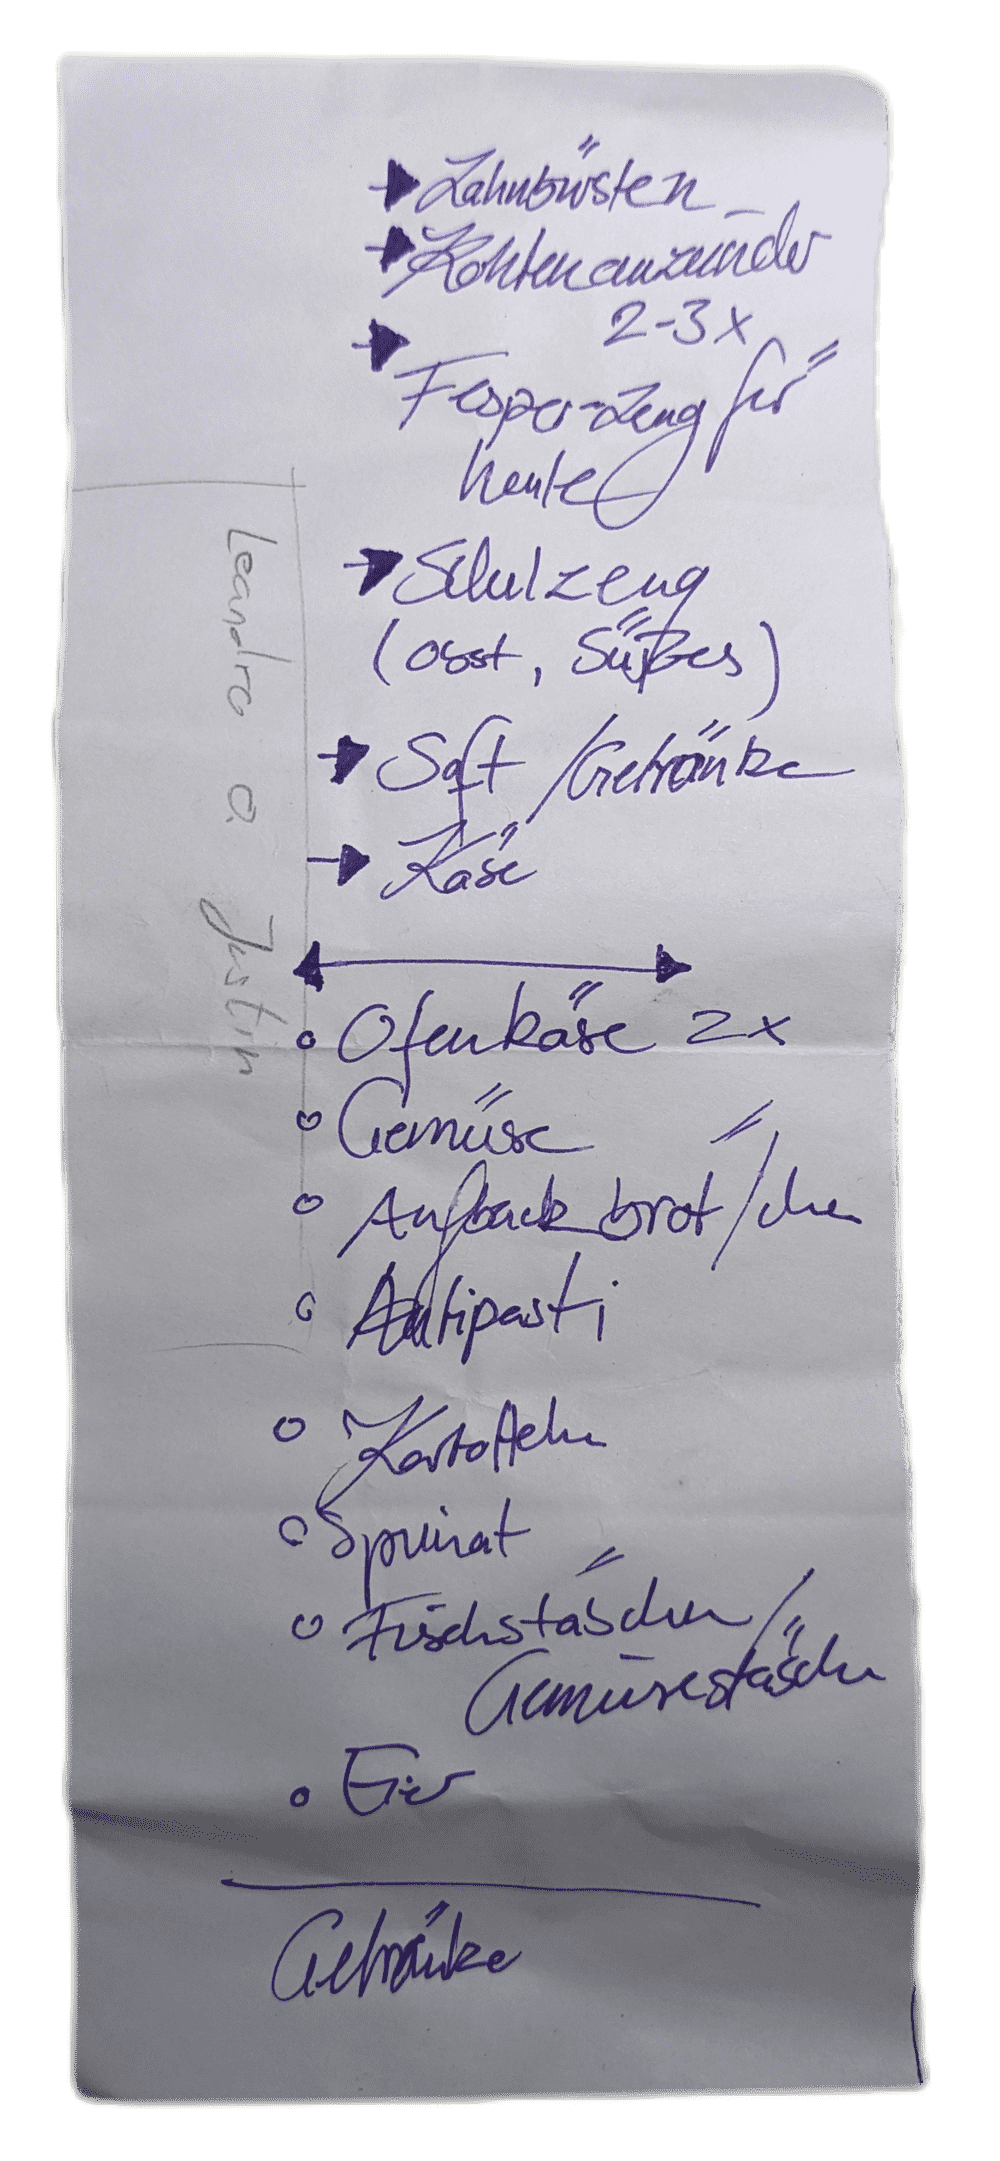 Zahnbürsten
Kohlenanzünder
2-3x
Fesper-zeug für
heute
Schulzeug
(Obst, Süßes)
Saft /Getränke
Käse
Ofenkäse 2x
Gemüse
Aufbackbrot/chen
Antipasti
Kartoffeln
Spinat
Fischstäbchen/
Gemüsestäbchen
Eier
Getränke
Leandro a Justin